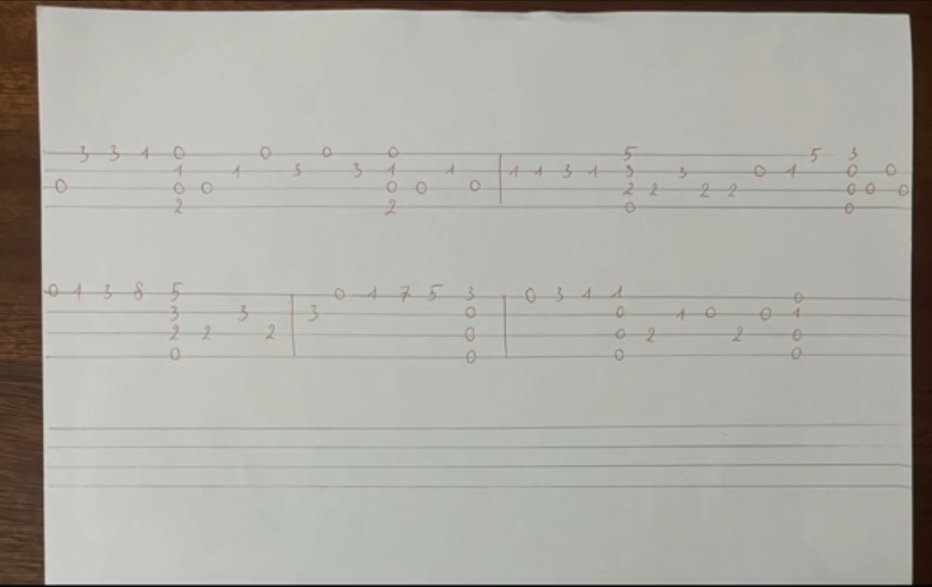 3 3 1 0 0 0 0 5 5 3
1 1 3 3 1 1 1 1 3 1 3 3 0 1 0 0
0 0 0 0 0 0 2 2 2 2 0 0 0
2 2 0 0
0 1 3 8 5 0 1 7 5 3 0 3 1 1 0
3 3 3 0 0 1 0 0 1
2 2 2 0 0 2 2 0
0 0 0 0